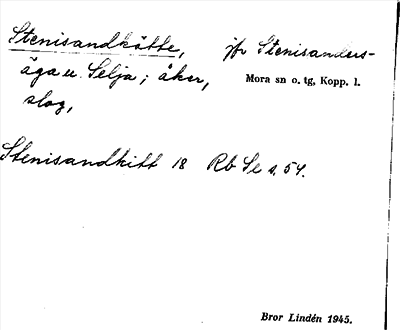 Stenisandkätte, jfr Stenisanders-
äga u. Selja; åker, Mora sn o. tg, Kopp. l.
slog,
Stenisandkitt 18 Rb Se s. 54.
Bror Lindén 1945.